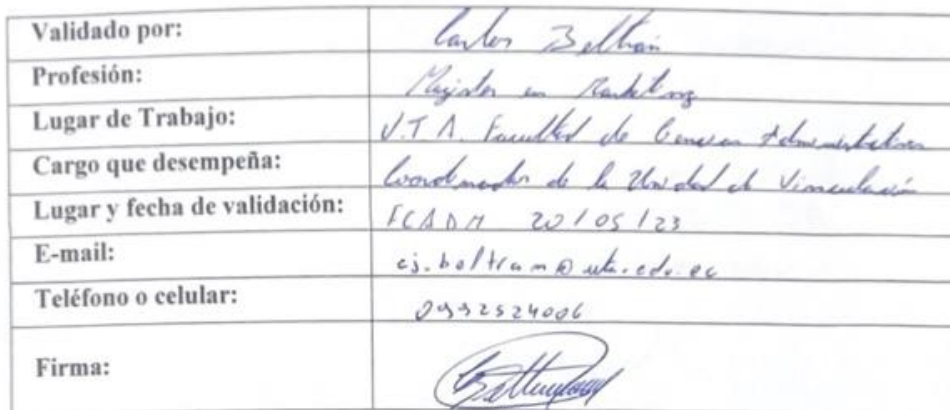 Validado por: Carlos Beltrán
Profesión: Magister en Marketing
Lugar de Trabajo: U.T.A. Facultad de Ciencias Administrativas
Cargo que desempeña: Coordinador de la Unidad de Vinculación
Lugar y fecha de validación: FCADM 20/05/23
E-mail: cj.beltran@uta.edu.ec
Teléfono o celular: 0992524006
Firma: